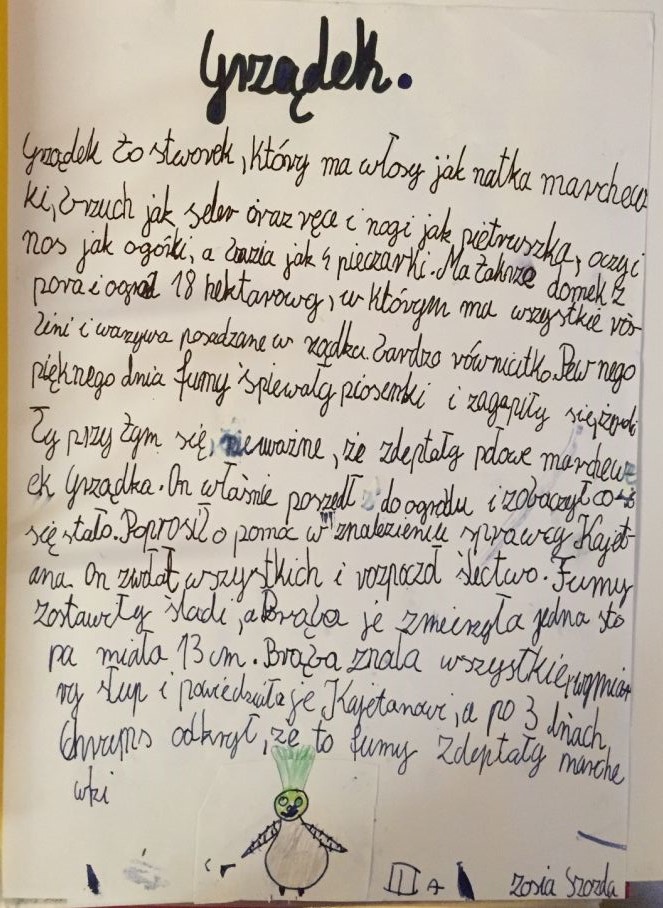 Grządek.
Grządek to stworek, który ma włosy jak natka marchew
ki, brzuch jak seler oraz ręce i nogi jak piętruszka, oczy i
nos jak ogórki, a buzia jak 4 pieczarki. Ma także domek z
pora i ogród 18 hektarowy, w którym ma wszystkie roś-
lini i warzywa posadzane w rządku. Bardzo równiutko. Pewnego
pięknego dnia fumy śpiewały piosenki i zagapiły się,
ły przy tym się, nieuważne, że zdeptały płowe marchew
ek Grządka. On właśnie poszedł do ogrodu i zobaczył co
się stało. Poprosił o pomoc w znalezieniu sprawcy Kajet-
ana. On zwołał wszystkich i rozpoczoł śledctwo. Fumy
zostawiły śladi, a Brąba je zmierzyła jedna sto
pa miała 13 cm. Brąba znała wszystkie wymia
ry stup i powiedziała je Kajetanowi, a po 3 dniach
Chraps odkrył, że to fumy zdeptały marche
wki
II A
Zosia Szozda